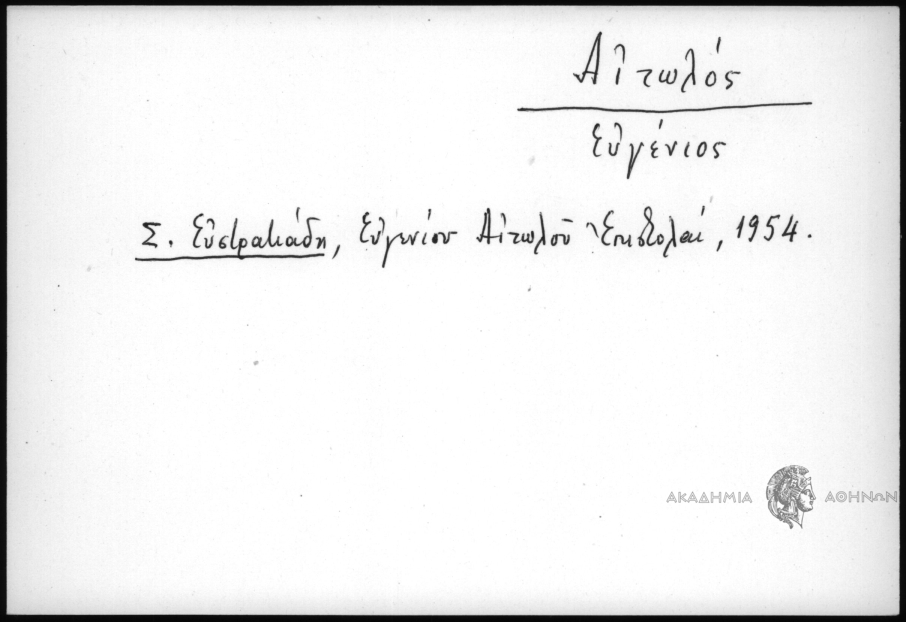 Αἰτωλός
Εὐγένιος
Σ. Εὐστρατιάδη, Εὐγενίου Αἰτωλοῦ Ἐπιστολαί, 1954.
ΑΚΑΔΗΜΙΑ ΑΘΗΝΩΝ